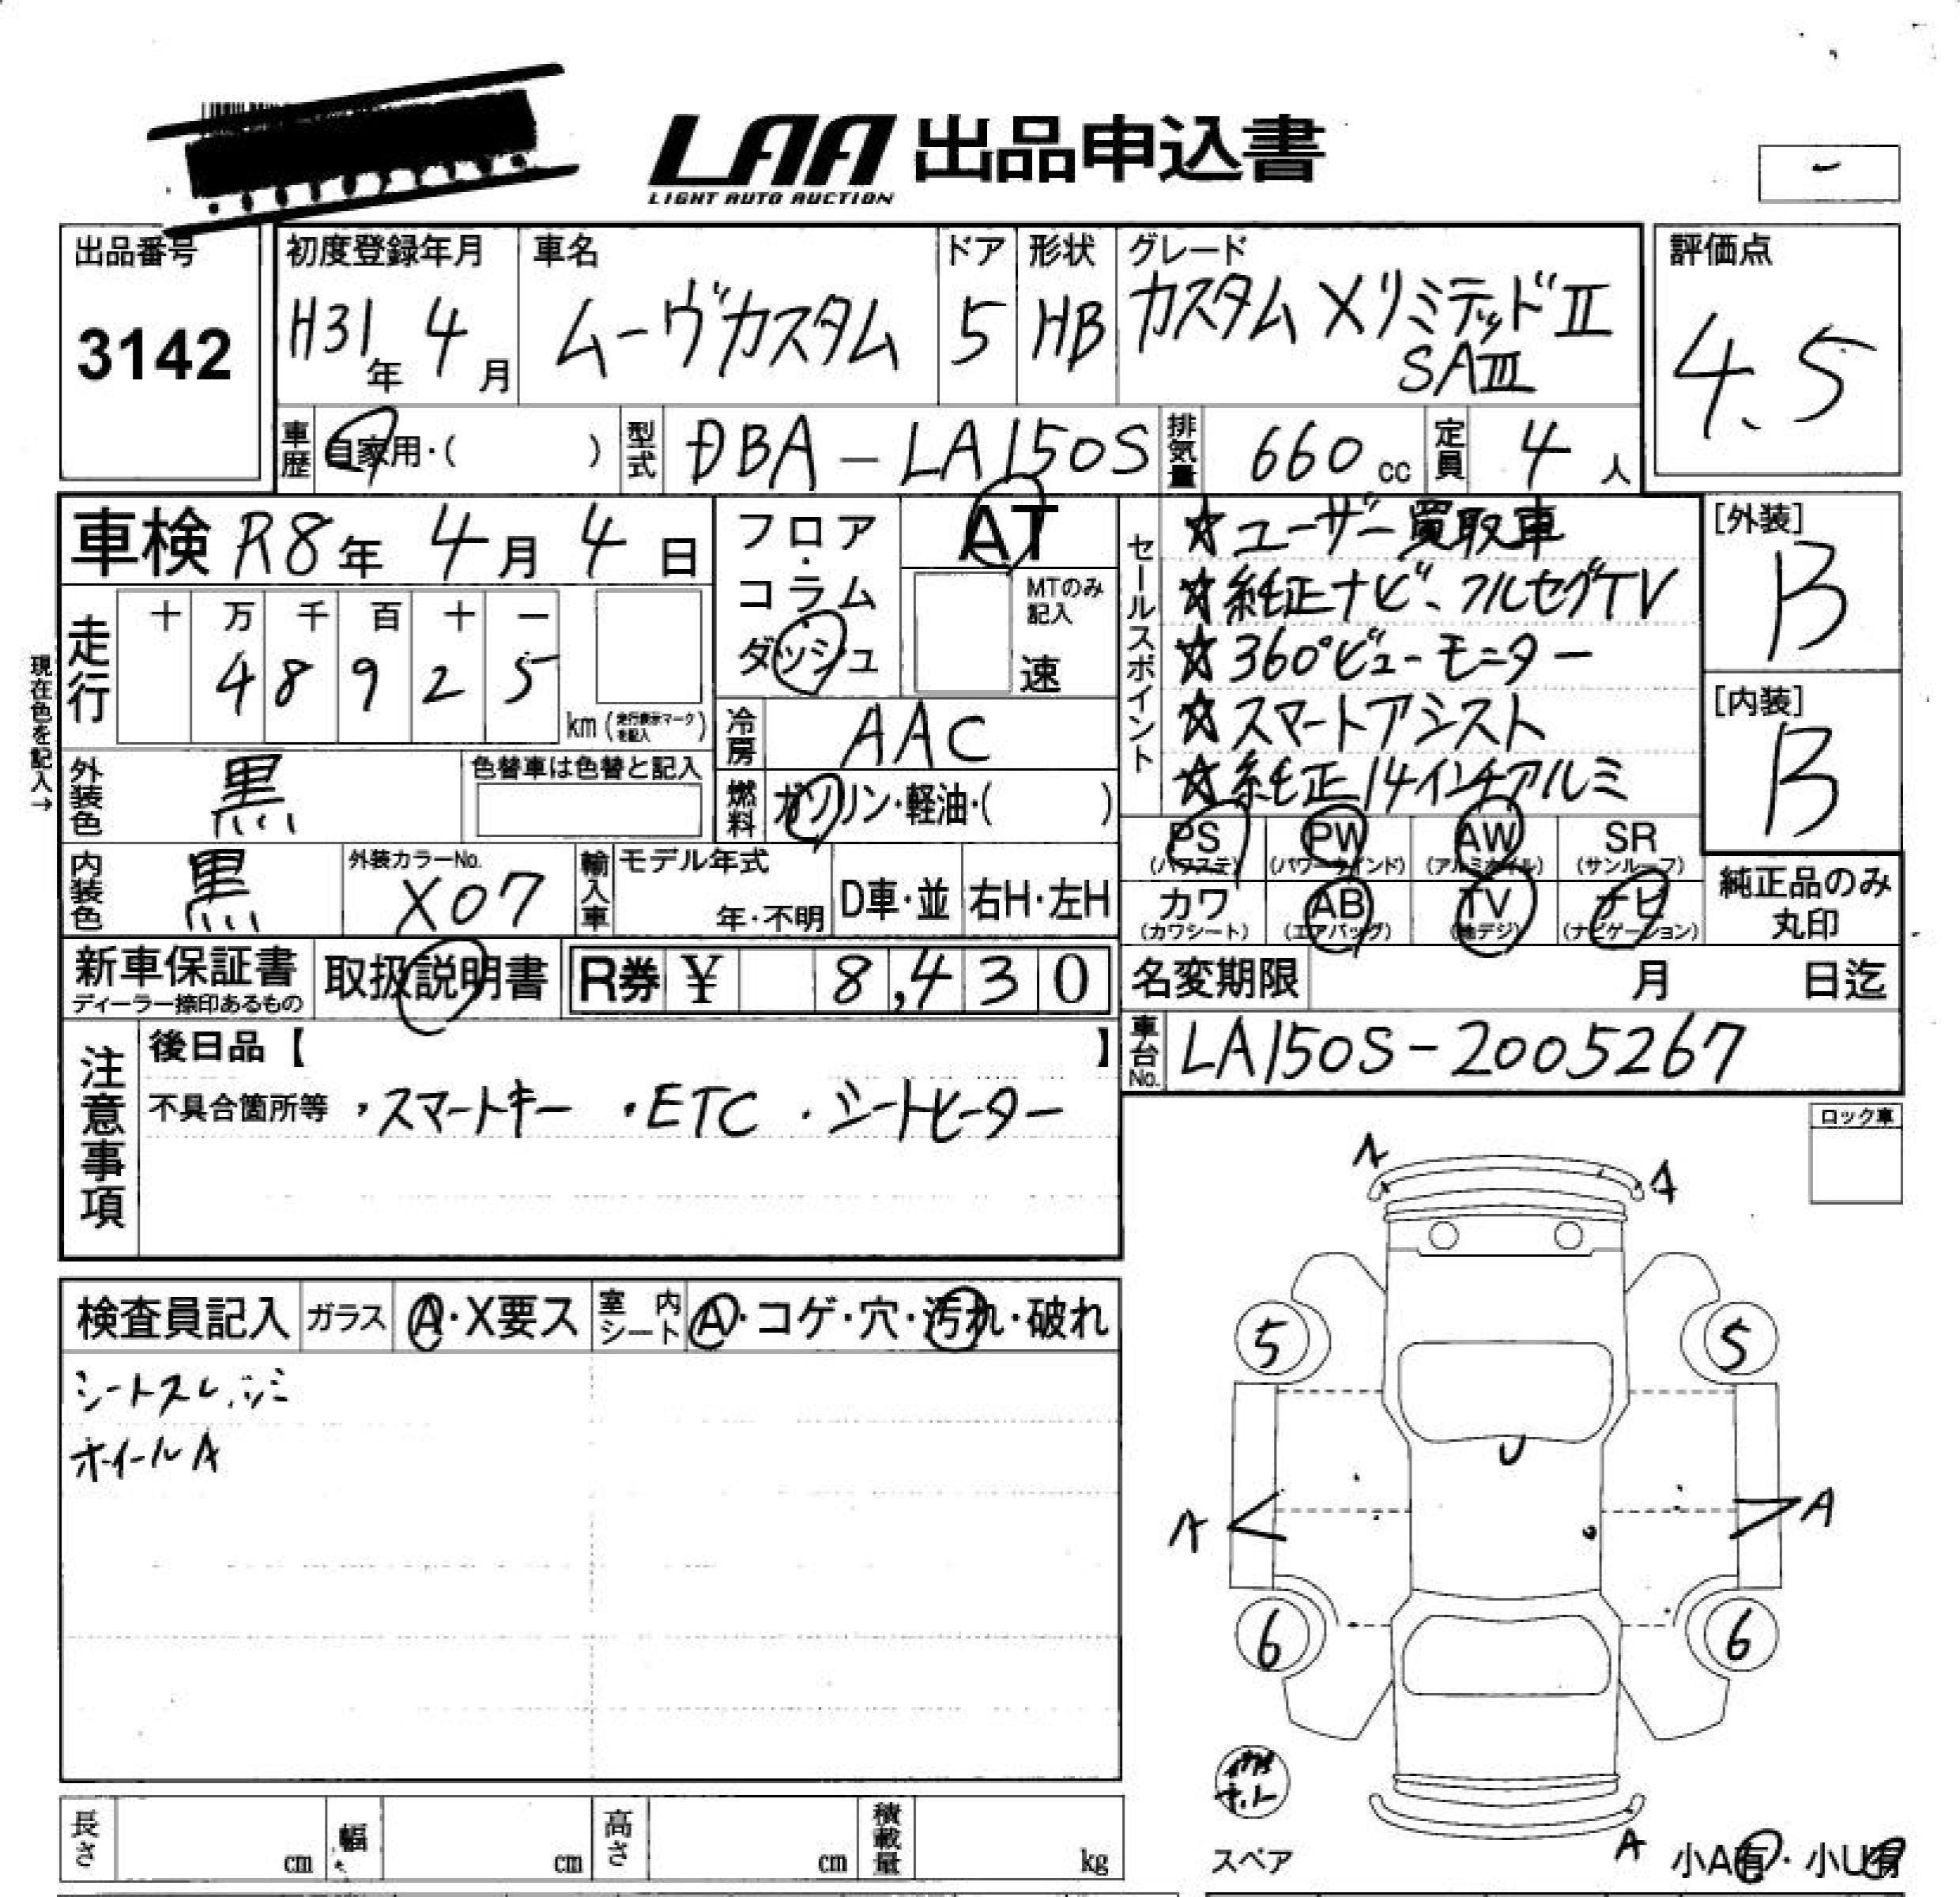 LAA 出品申込書
LIGHT AUTO AUCTION
-
出品番号
3142
初度登録年月
H31年 4月
車名
ムーヴカスタム
ドア
5
形状
HB
グレード
カスタム Xリミテッド Ⅱ
SAⅢ
評価点
4.5
車歴 自家用・( )
型式 DBA-LA150S
排気量 660 cc
定員 4 人
車検 R8年 4月 4日
走行
十 万 千 百 十 一
4 8 9 2 5
km (走行表示マークを記入)
現在色を記入→
フロア・コラム・ダッシュ
AT
MTのみ記入
速
冷房 AAC
燃料 ガソリン・軽油・( )
セールスポイント
☆ユーザー買取車
☆純正ナビ、フルセグTV
☆360°ビューモニター
☆スマートアシスト
☆純正14インチアルミ
[外装]
B
[内装]
B
外装色 黒
色替車は色替と記入
内装色 黒
外装カラーNo.
X07
輸入車
モデル年式
年・不明
D車・並
右H・左H
PS (パワステ)
PW (パワーウインド)
AW (アルミホイル)
SR (サンルーフ)
カワ (カワシート)
AB (エアバッグ)
TV (地デジ)
ナビ (ナビゲーション)
純正品のみ
丸印
新車保証書
ディーラー捺印あるもの
取扱説明書
R券 ¥ 8,430
名変期限 月 日迄
車台No. LA150S-2005267
注意事項
後日品【 】
不具合箇所等 ・スマートキー ・ETC ・シートヒーター
ロック車
検査員記入
ガラス A・X要ス
室内シート A・コゲ・穴・汚れ・破れ
シートスレ、シミ
ホイールA
A
A
5
5
U
A
A
6
6
スペア
A
小A有・小U有
長さ cm
幅 cm
高さ cm
積載量 kg